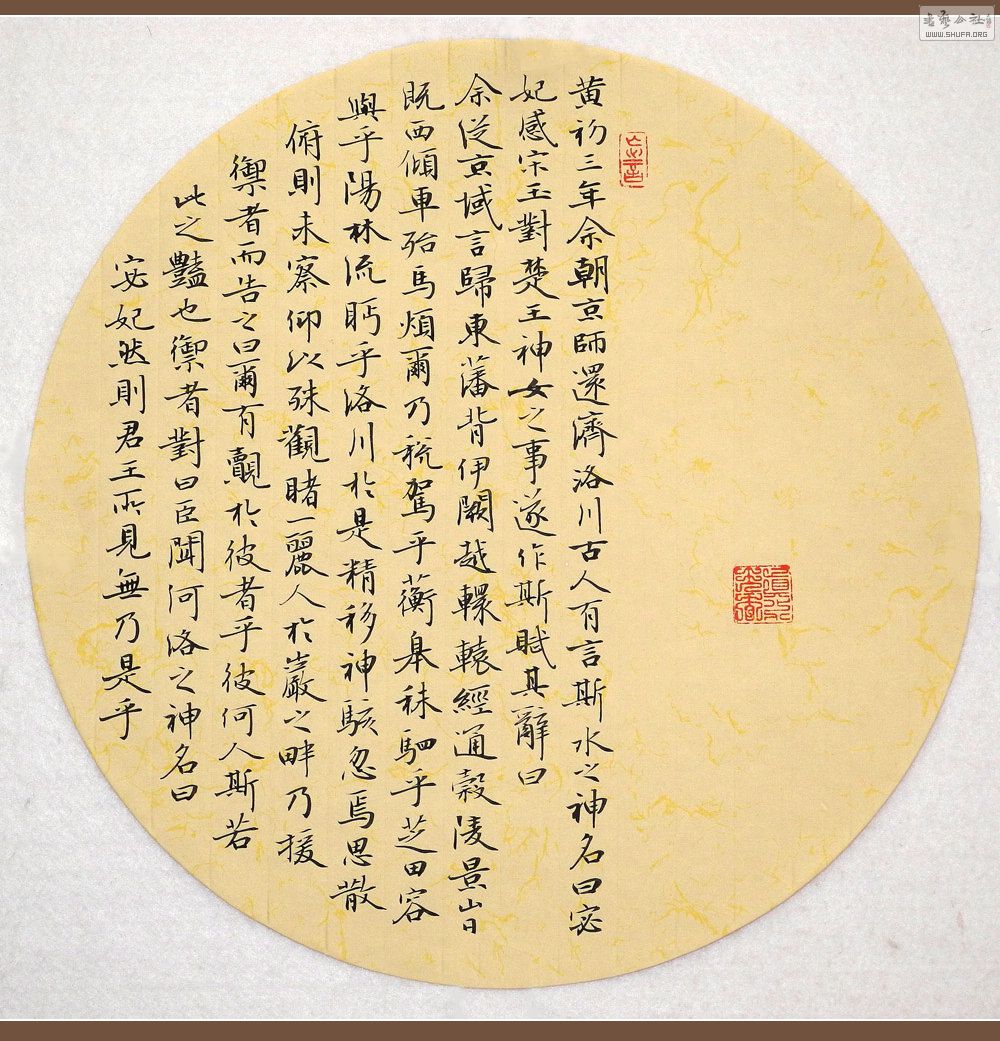 黄初三年余朝京師還濟洛川古人有言斯水之神名曰宓
妃感宋玉對楚王神女之事遂作斯賦其辭曰
余従京域言歸東藩背伊闕越轘轅經通穀陵景山日
既西傾車殆馬煩爾乃税駕乎蘅皋秣駟乎芝田容
與乎陽林流眄乎洛川於是精移神駭忽焉思散
俯則未察仰以殊觀睹一麗人於巖之畔乃援
禦者而告之曰爾有覿於彼者乎彼何人斯若
此之豔也禦者對曰臣聞何洛之神名曰
宓妃然則君王所見無乃是乎
書藝公社
WWW.SHUFA.ORG